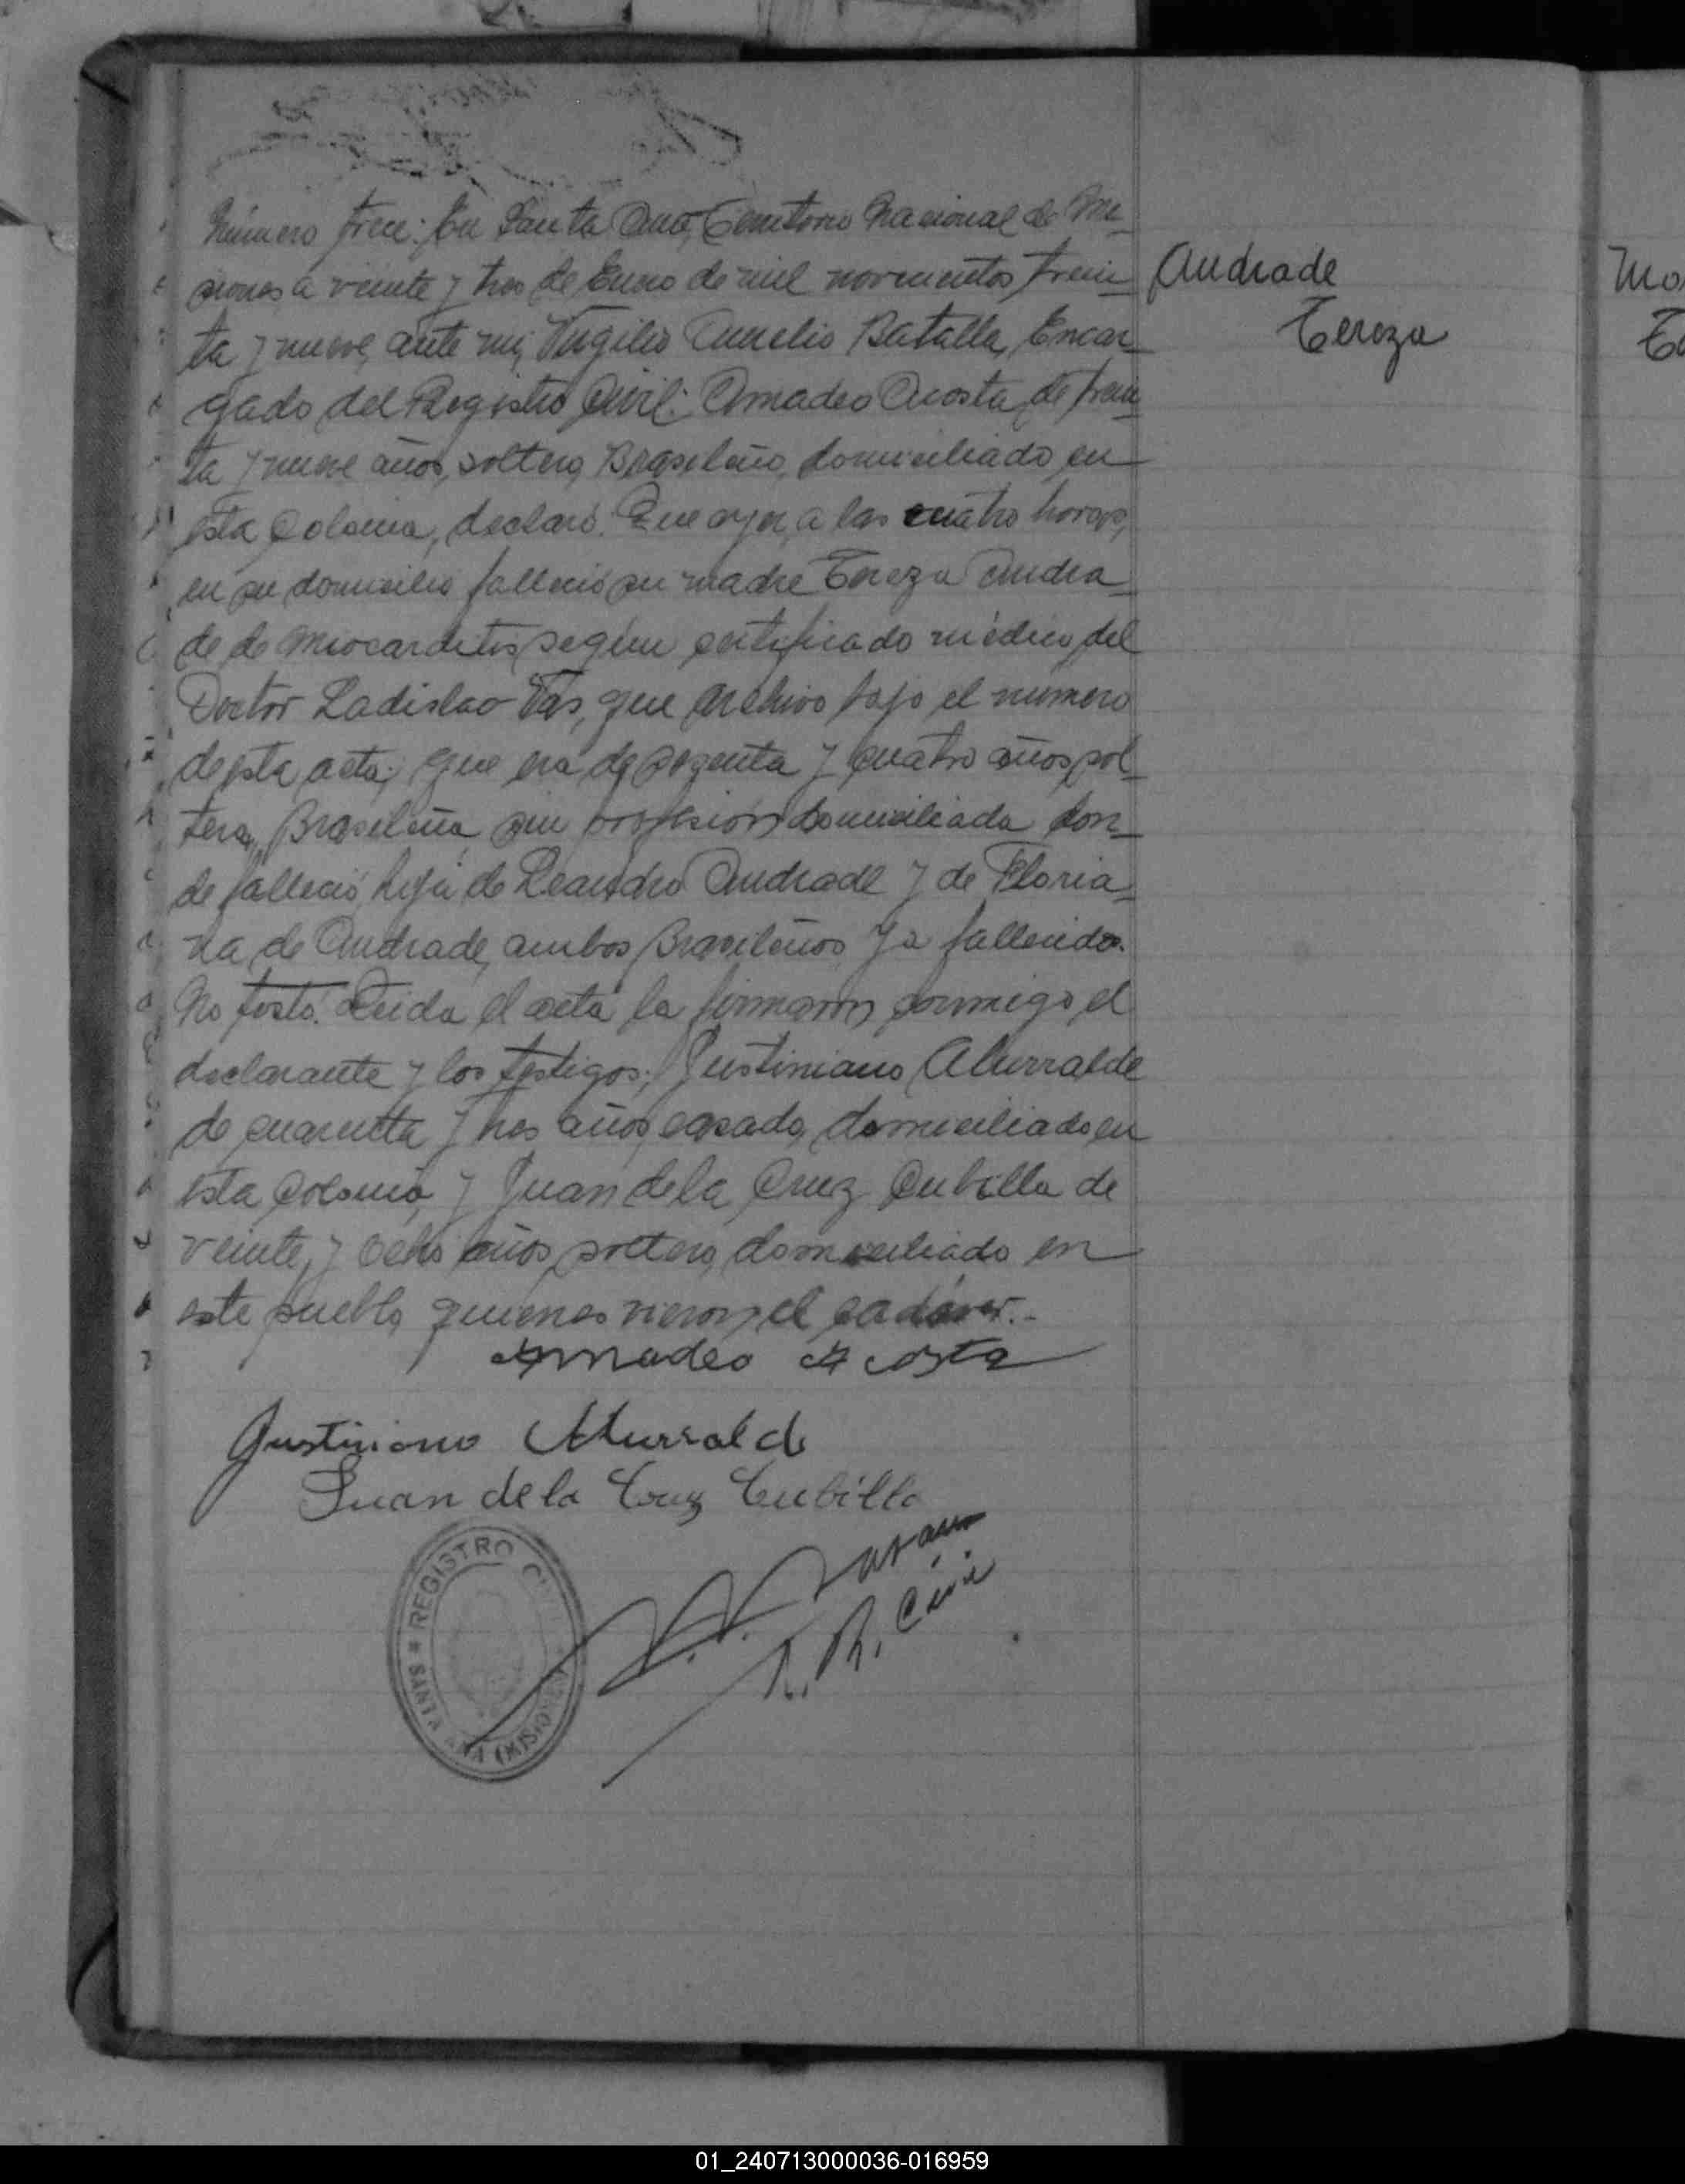 Número trece: En Santa Ana, Territorio Nacional de Mi-
siones a veinte y tres de Enero de mil novecientos trein-
ta y nueve, ante mi, Virgilio Aurelio Batalla, Encar-
gado del Registro Civil: Amadeo Acosta, de trein-
ta y nueve años, soltero, Brasileño, domiciliado en
esta Colonia, declaró: Que ayer, a las cuatro horas,
en su domicilio falleció su madre Tereza Andra-
de de Miocarditis, según certificado médico del
Doctor Ladislao Vas, que archivo bajo el número
de esta acta; que era de sezenta y cuatro años, sol-
tera, Brasileña, sin profesión, domiciliada don-
de falleció, hija de Leandro Andrade y de Floria-
na de Andrade, ambos Brasileños ya fallecidos.
No testó. Leida el acta la firmaron conmigo, el
declarante y los testigos: Justiniano Alurralde
de cuarenta y tres años, casado, domiciliado en
esta Colonia, y Juan de la Cruz Cubilla de
veinte y ocho años, soltero, domiciliado en
este pueblo, quienes vieron el cadáver.-
Amadeo Acosta
Justiniano Alurralde
Juan de la Cruz Cubilla
REGISTRO CIVIL
SANTA ANA (MISIONES)
Andrade
Tereza
01_240713000036-016959